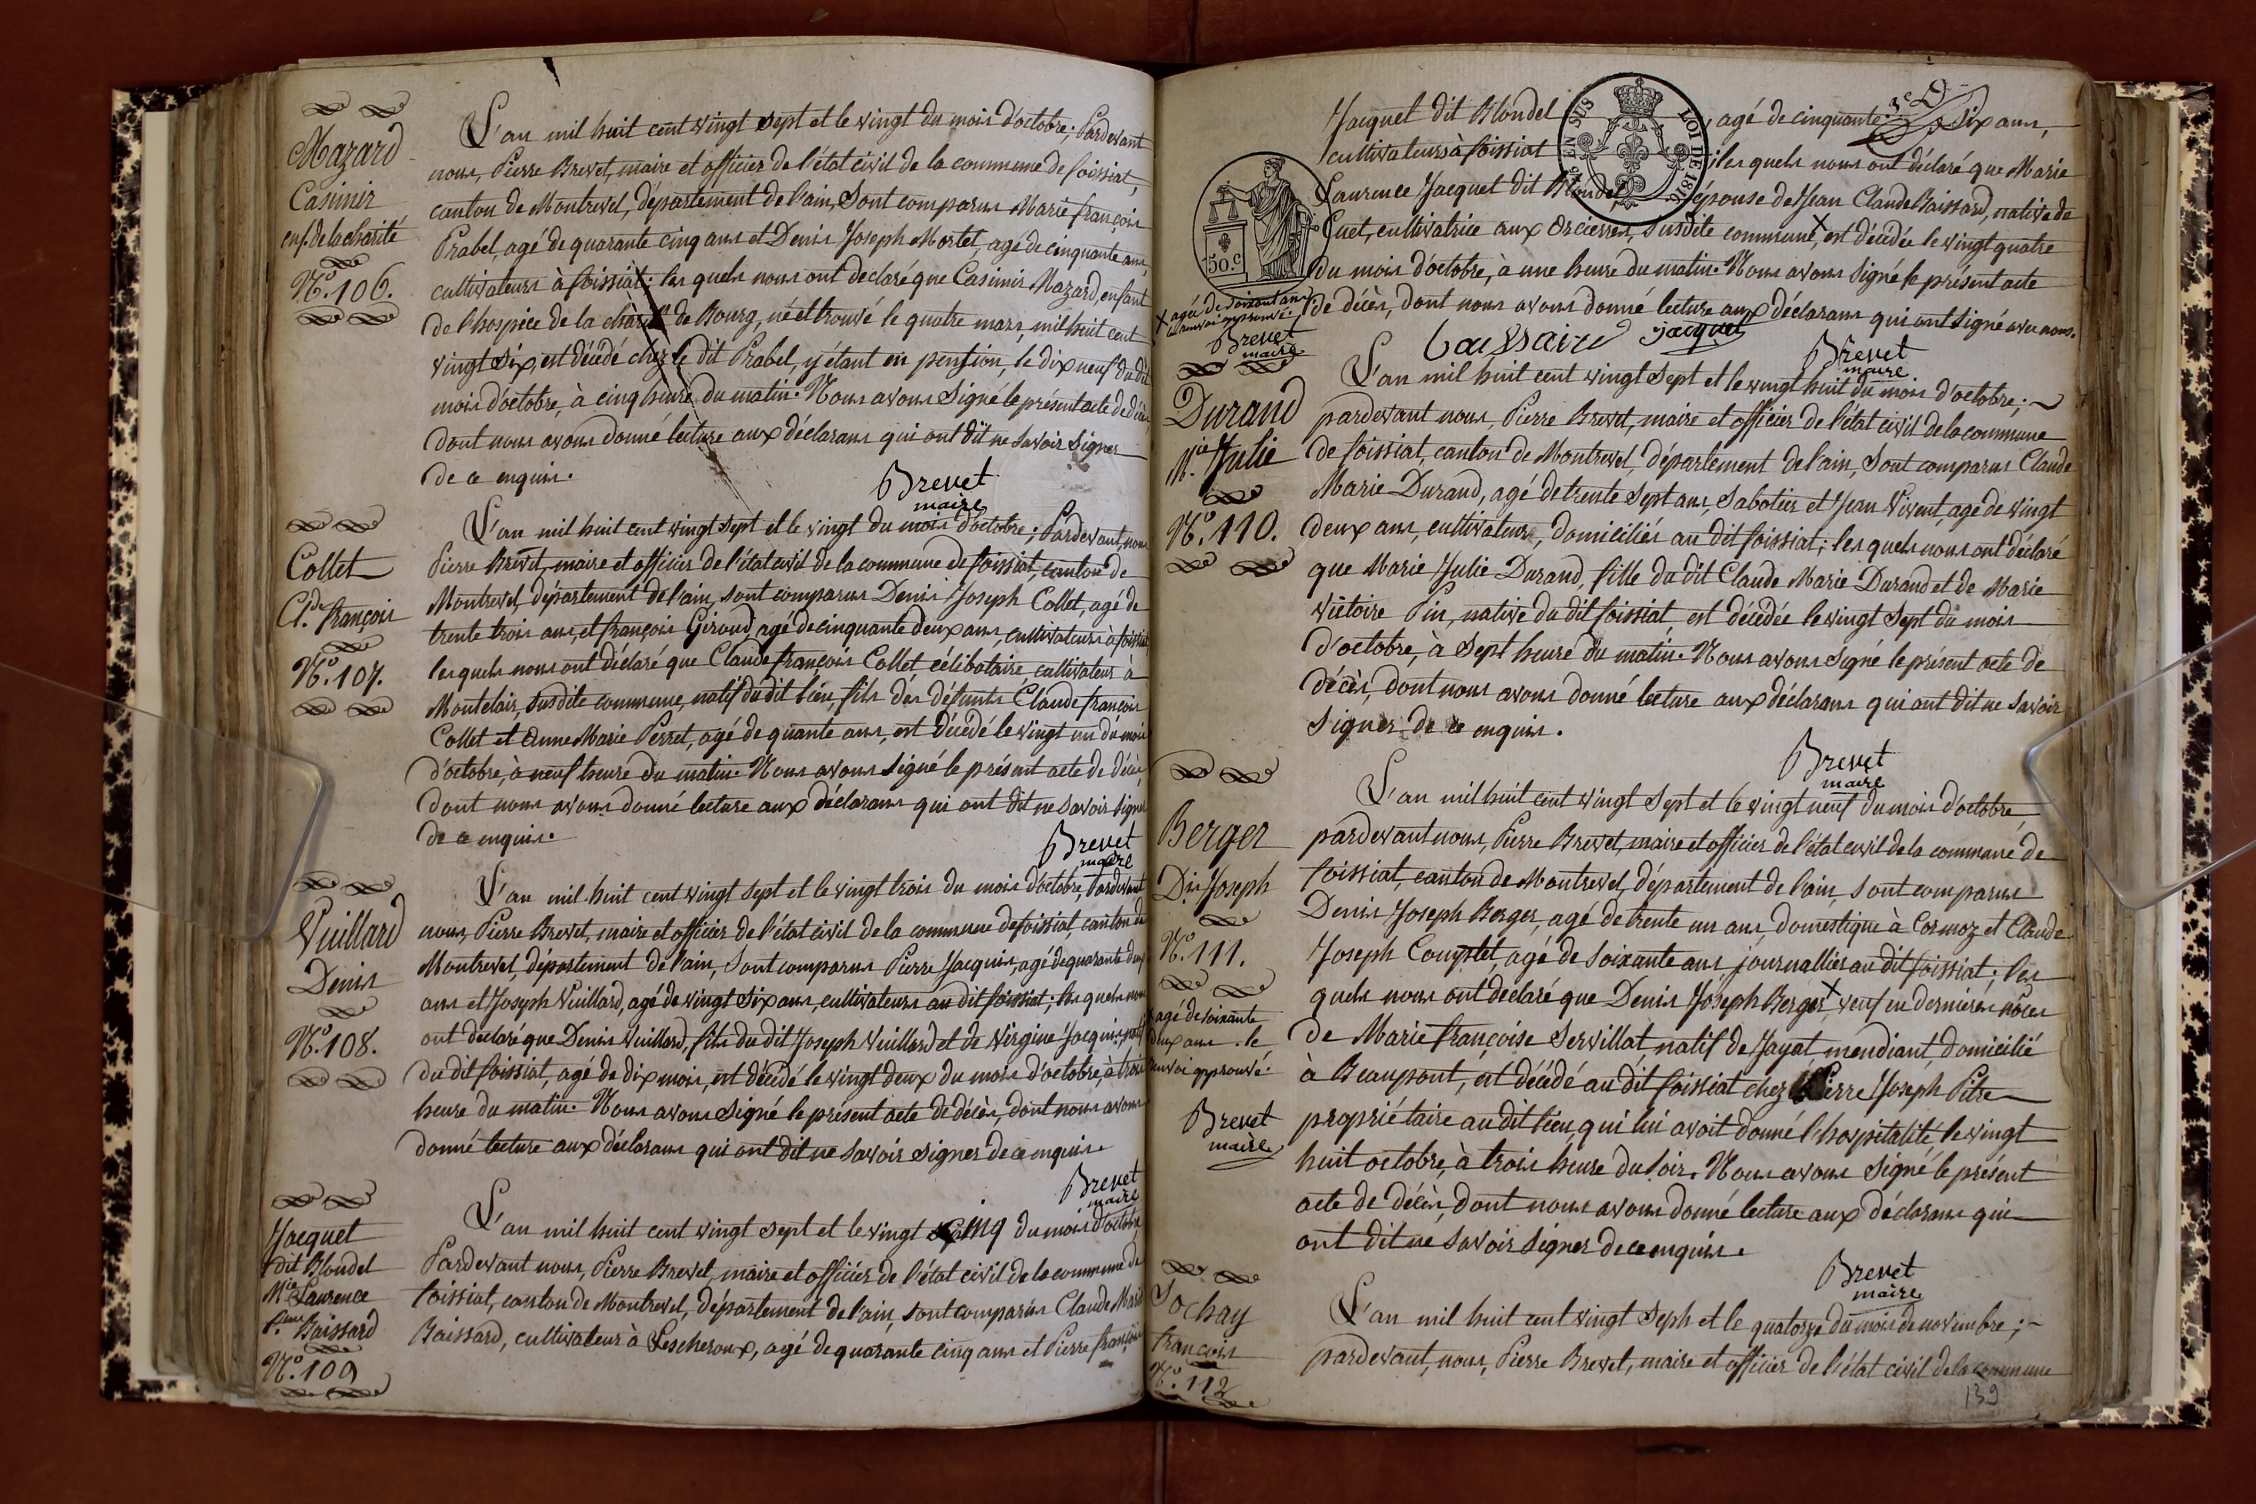 Mazard
Casimir
enf. de la charité
N.º 106.
L'an mil huit cent vingt sept et le vingt du mois d'octobre; Pardevant
nous, Pierre Brevet, maire et officier de l'état civil de la commune de foissiat,
canton de Montrevel, département de l'ain, Sont comparus Marie françois
Prabel, agé de quarante cinq ans et Denis Joseph Mortet, agé de cinquante ans,
cultivateurs à foissiat; les quels nous ont declaré que Casimir Mazard, enfant
de l'hospice de la charité de Bourg, né et trouvé le quatre mars, mil huit cent
vingt Six, est décédé chez le dit Prabel, y étant en pension, le dix neuf du dit
mois d'octobre, à cinq heure du matin. Nous avons Signé le présent acte de décès
dont nous avons donné lecture aux déclarans qui ont dit ne savoir signer
de ce enquis.
Brevet
maire
Collet
Cl.de françois
N.º 107.
L'an mil huit cent vingt sept et le vingt du mois d'octobre; Pardevant, nous
Pierre Brevet, maire et officier de l'état civil de la commune de foissiat, canton de
Montrevel, département de l'ain, sont comparus Denis Joseph Collet, agé de
trente trois ans, et françois Giroud, agé de cinquante deux ans, cultivateurs à foissiat
les quels nous ont déclaré que Claude françois Collet célibataire, cultivateur à
Montclair, susdite commune, natif du dit lieu, fils des défunts Claude françois
Collet et Anne Marie Perret, agé de quante ans, est décédé le vingt un du mois
d'octobre, à neuf heure du matin. Nous avons signé le présent acte de décès,
dont nous avons donné lecture aux déclarans qui ont dit ne savoir signer
de ce enquis.
Brevet
maire
Vuillard
Denis
N.º 108.
L'an mil huit cent vingt sept et le vingt trois du mois d'octobre, Pardevant
nous, Pierre Brevet, maire et officier de l'état civil de la commune de foissiat, canton de
Montrevel, département de l'ain, Sont comparus Pierre Jacquis, agé de quarante deux
ans et Joseph Vuillard, agé de vingt Six ans, cultivateurs au dit foissiat; les quels nous
ont declaré que Denis Vuillard, fils du dit Joseph Vuillard et de Virginie Jacquis, natif
du dit foissiat, agé de dix mois, est décédé le vingt deux du mois d'octobre, à trois
heure du matin. Nous avons Signé le présent acte de décès, dont nous avons
donné lecture aux déclarans qui ont dit ne savoir signer de ce enquis.
Brevet
maire
Jacquet
dit Blondel
M.ie Laurence
f.me Baissard
N.º 109
L'an mil huit cent vingt sept et le vingt cinq du mois d'octobre
Pardevant nous, Pierre Brevet, maire et officier de l'état civil de la commune de
foissiat, canton de Montrevel, département de l'ain, sont comparus Claude Marie
Baissard, cultivateur à Lescheroux, agé de quarante cinq ans et Pierre françois
Jacquet dit Blondel, agé de cinquante Six ans,
cultivateurs à foissiat; les quels nous ont déclaré que Marie
Laurence Jacquet dit Blondel épouse de Jean Claude Baissard, native de
Cuet, cultivatrice aux Orcieres, susdite commune, x est décédée le vingt quatre
du mois d'octobre, à une heure du matin. Nous avons Signé le présent acte
de décès, dont nous avons donné lecture aux déclarans qui ont signé avec nous.
EN SUS
LOI DE 1816
50.c
x agée de soixante ans
le renvoi approuvé.
Brevet
maire
Jacquet
Brevet
maire
Durand
M.ie Julie
N.º 110.
L'an mil huit cent vingt Sept et le vingt huit du mois d'octobre;
pardevant nous, Pierre Brevet, maire et officier de l'état civil de la commune
de foissiat, canton de Montrevel, département de l'ain, Sont comparus Claude
Marie Durand, agé de trente sept ans, sabotier et Jean Vivent, agé de vingt
deux ans, cultivateur, domiciliés au dit foissiat; les quels nous ont déclaré
que Marie Julie Durand, fille du dit Claude Marie Durand et de Marie
Victoire Pin, native du dit foissiat, est décédée le vingt Sept du mois
d'octobre, à Sept heure du matin. Nous avons signé le présent acte de
décès, dont nous avons donné lecture aux déclarans qui ont dit ne savoir
signer de ce enquis.
Brevet
maire
Berger
D.is Joseph
N.º 111.
L'an mil huit cent vingt Sept et le vingt neuf du mois d'octobre,
pardevant nous, Pierre Brevet, maire et officier de l'état civil de la commune de
foissiat, canton de Montrevel, département de l'ain, sont comparus
Denis Joseph Berger, agé de trente un ans, domestique à Cormoz et Claude
Joseph Couptet, agé de Soixante ans journallier au dit foissiat; les
quels nous ont declaré que Denis Joseph Berger x veuf en dernieres nôces
de Marie françoise Servillat, natif de Jayat, mendiant, domicilié
à Beaupont, est décédé au dit foissiat chez Pierre Joseph Pitre
propriétaire au dit lieu, qui lui avoit donné l'hospitalité le vingt
huit octobre, à trois heure du soir. Nous avons signé le présent
acte de décès, dont nous avons donné lecture aux déclarans qui
ont dit ne savoir signer de ce enquis.
x agé de soixante
deux ans. le
renvoi approuvé.
Brevet
maire
Brevet
maire
Sochay
françois
N.º 112
L'an mil huit cent vingt Seph et le quatorze du mois de novembre;
pardevant, nous, Pierre Brevet, maire et officier de l'état civil de la commune
139